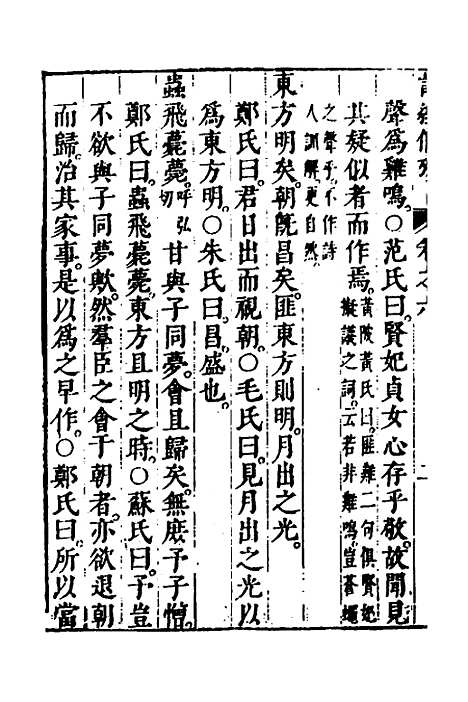 聲爲雞鳴○范氏曰賢妃貞女心存乎敬故聞見
其疑似者而作焉黃陂黃氏曰匪雞二句俱賢妃
擬議之詞云若非雞鳴豈蒼蠅
之聲乎不作詩
人訓解更自然
東方明矣朝旣昌矣匪東方則明月出之光
鄭氏曰君日出而視朝○毛氏曰見月出之光以
爲東方明○朱氏曰昌盛也
蟲飛薨薨呼弘切甘與子同夢會且歸矣無庶予子憎
鄭氏曰蟲飛薨薨東方且明之時○蘇氏曰予豈
不欲與子同夢歟然羣臣之會于朝者亦欲退朝
而歸治其家事是以爲之早作○鄭氏曰所以當